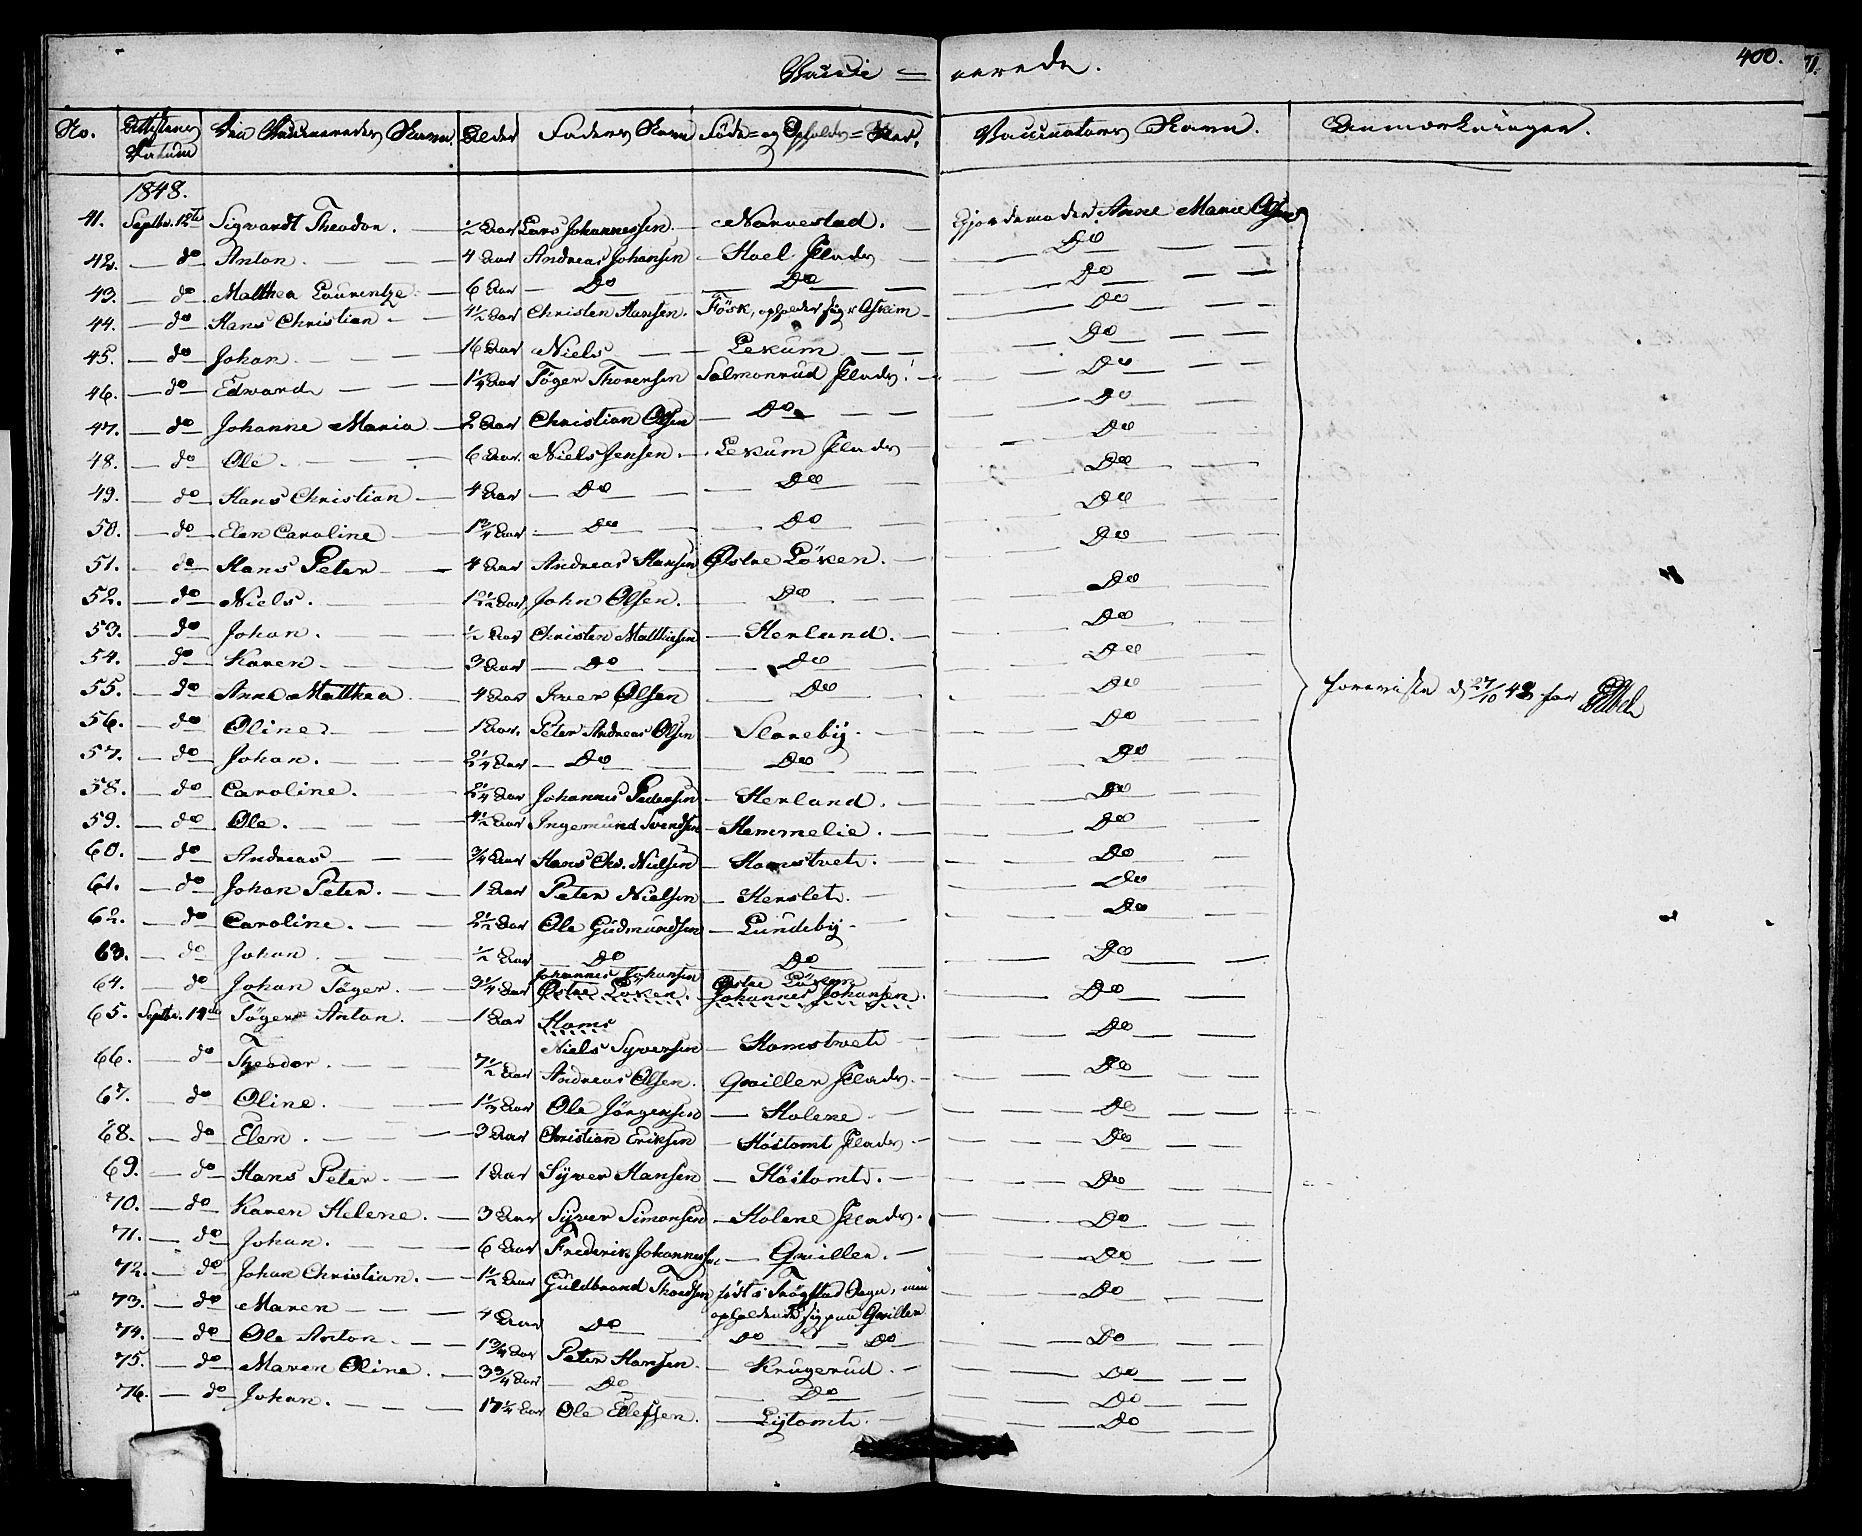 400.
Vacci = nerede.
No. Attestens Datum Den Vaccineredes Navn. Alder Faders Navn Føde= og Opholds= Sted. Vaccinators Navn. Anmærkninger.
1848.
41. Septbr. 12te Sigvardt Theodor. ½ Aar Lars Johannessen. Narvestad. Gjordemoder Anne Marie Olsen
42. do Anton 4 Aar Andreas Johansen Hoel Plads Do
43. do Matthea Laurentze 6 Aar Do Do Do
44. do Hans Christian 4½ Aar Christen Hansen. Fösk, opholder sig i Askim Do
45. do Johan 16 Aar Niels Lekum Do
46. do Edvard 1¼ Aar Töger Thorersen Salmonrud Plads. Do
47. do Johanne Maria 2 Aar Christian Olsen Do Do
48. do Ole. 6 Aar. Niels Jensen. Lekum Plads Do
49. do Hans Christian 4 Aar Do Do Do
50. do Elen Caroline 1¾ Aar Do Do Do
51. do Hans Peter 4 Aar Andreas Hansen Østre Löken. Do
52. do Niels. 12½ Aar John Olsen. Do Do
53. do Johan. ½ Aar Christen Matthiesen Herland. Do
54. do Karen 3 Aar Do Do Do
55. do Anne Matthea 4 Aar Iver Olsen Do Do
forevist d 27/10 48 for
56. do Oline 1 Aar. Peter Andreas Olsen Sloreby. Do
57. do Johan. 2¼ Aar Do Do Do
58. do Caroline. 2¼ Aar Johannes Pedersen Herland. Do
59. do Ole. 4½ Aar Ingemund Svendsen Hemmelie. Do
60. do Andreas ¾ Aar Hans Chr. Nielsen Homstvet. Do
61. do Johan Peter. 1 Aar Peter Nielsen Herslet. Do
62. do Caroline. 2½ Aar Ole Gudmundsen Lundeby. Do
63. do Johan ½ Aar Do Do Do
64. do Johan Töger. 3¼ Aar Johannes Johansen Østre Löken. Østre Löken Johannes Johansen. Do
65. Septbr. 14de Töger Anton. 1 Aar Homs Niels Syversen Homstvet Do
66. do Theodor. 7½ Aar Andreas Olsen. Qviller Plads. Do
67. do Oline. 1⅓ Aar Ole Jörgensen Holene Do
68. do Elen. 3 Aar Christian Eriksen Höitomt Plads. Do
69. do Hans Peter 1 Aar Syver Hansen Höitomt. Do
70. do Karen Helene. 3 Aar Syver Simonsen Holene Plads. Do
71. do Johan. 6 Aar Frederik Johannessen Qviller. Do
72. do Johan Christian. 1½ Aar Guldbrand Thordsen födt i Trögstad Sogn, men opholdende sig paa Qviller Do
73. do Maren 4 Aar Do Do Do Do
74. do Ole Anton 1¾ Aar Peter Hansen. Krugerud. Do
75. do Maren Oline. 3¾ Aar Do Do Do
76. do Johan. 17¼ Aar Ole Ellefsen. Lystomt. Do